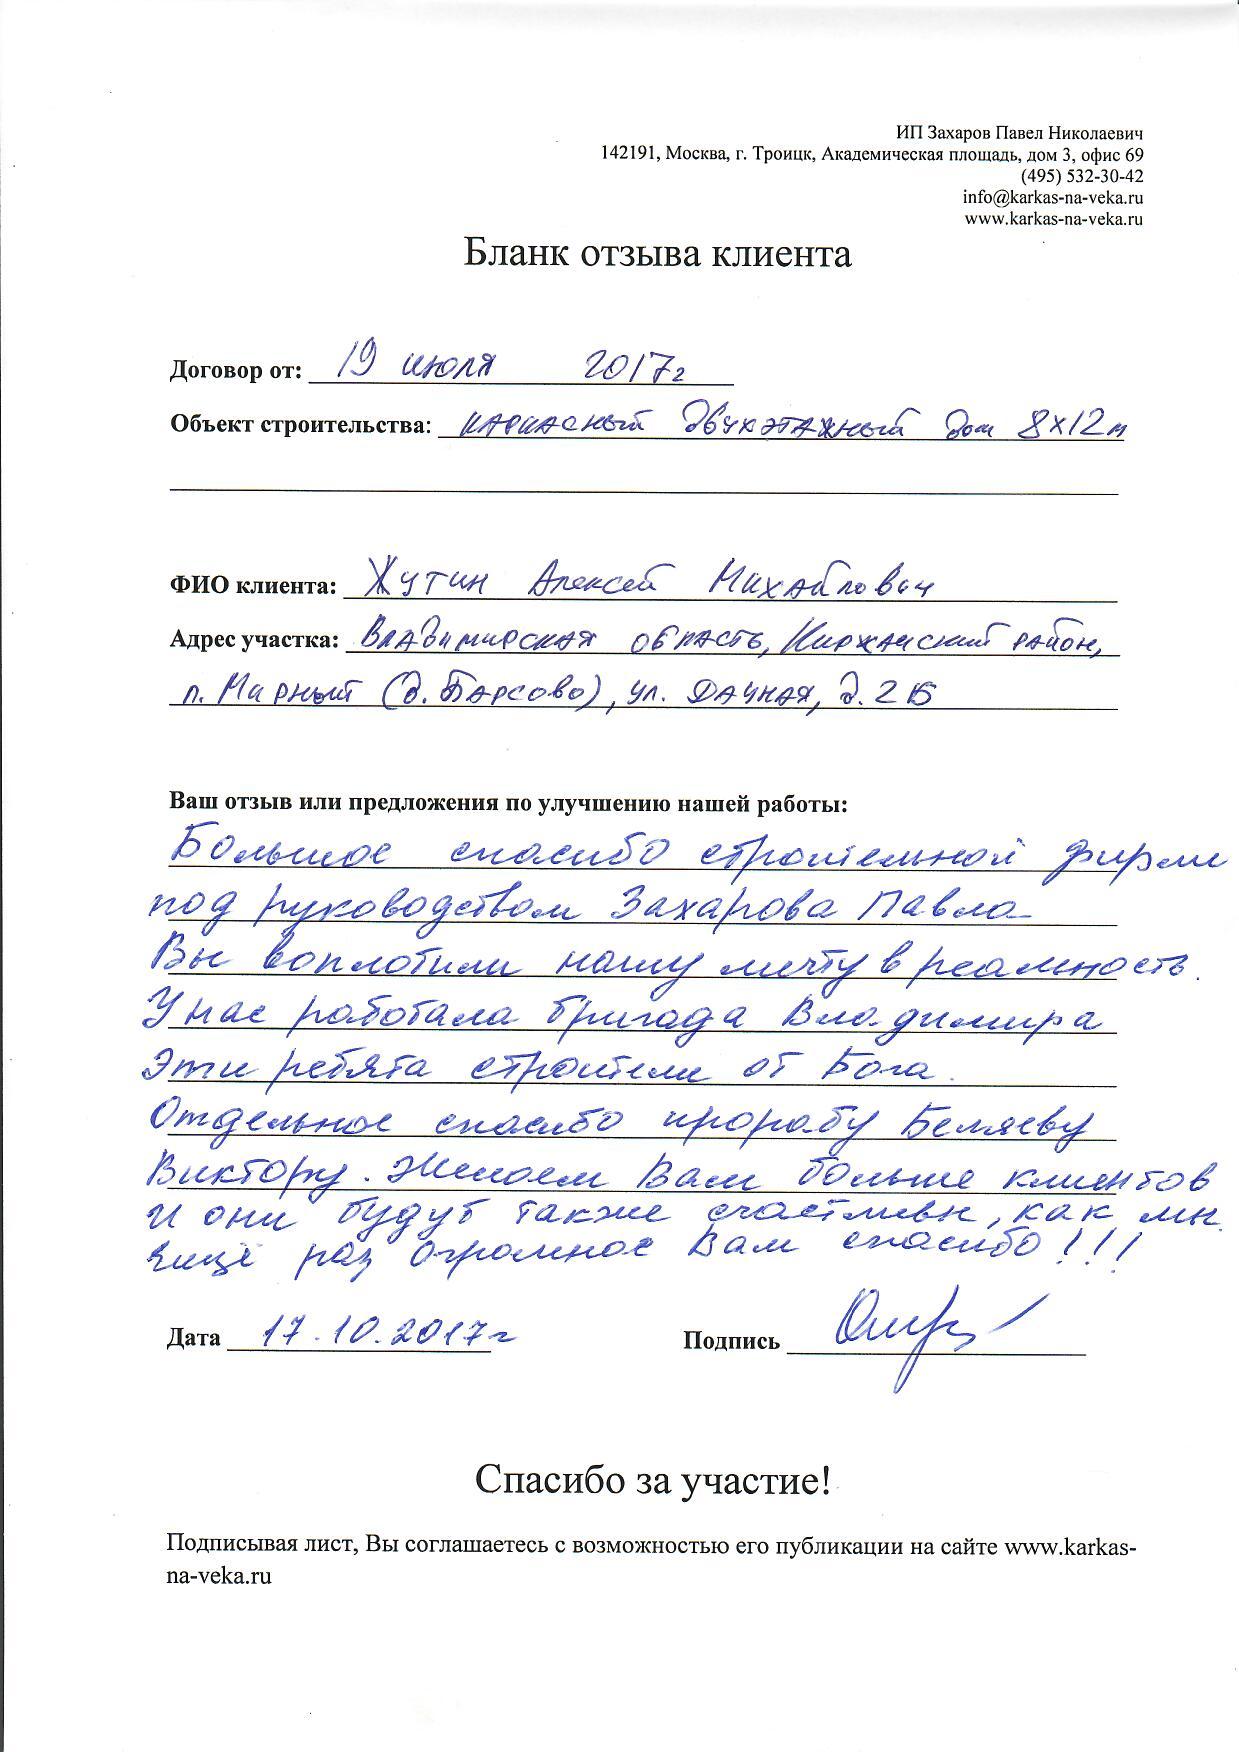 ИП Захаров Павел Николаевич
142191, Москва, г. Троицк, Академическая площадь, дом 3, офис 69
(495) 532-30-42
info@karkas-na-veka.ru
www.karkas-na-veka.ru
Бланк отзыва клиента
Договор от: 19 июля 2017г
Объект строительства: каркасный двухэтажный дом 8х12м
ФИО клиента: Жутин Алексей Михайлович
Адрес участка: Владимирская область, Киржачский район,
п. Мирный (д. Барсово), ул. Дачная, д. 2Б
Ваш отзыв или предложения по улучшению нашей работы:
Большое спасибо строительной фирме
под руководством Захарова Павла
Вы воплотили нашу мечту в реальность.
У нас работала бригада Владимира
Эти ребята строители от Бога.
Отдельное спасибо прорабу Беляеву
Виктору. Желаем Вам больше клиентов
и они будут также счастливы, как мы.
Еще раз огромное Вам спасибо!!!
Дата 17.10.2017г Подпись
Спасибо за участие!
Подписывая лист, Вы соглашаетесь с возможностью его публикации на сайте www.karkas-
na-veka.ru